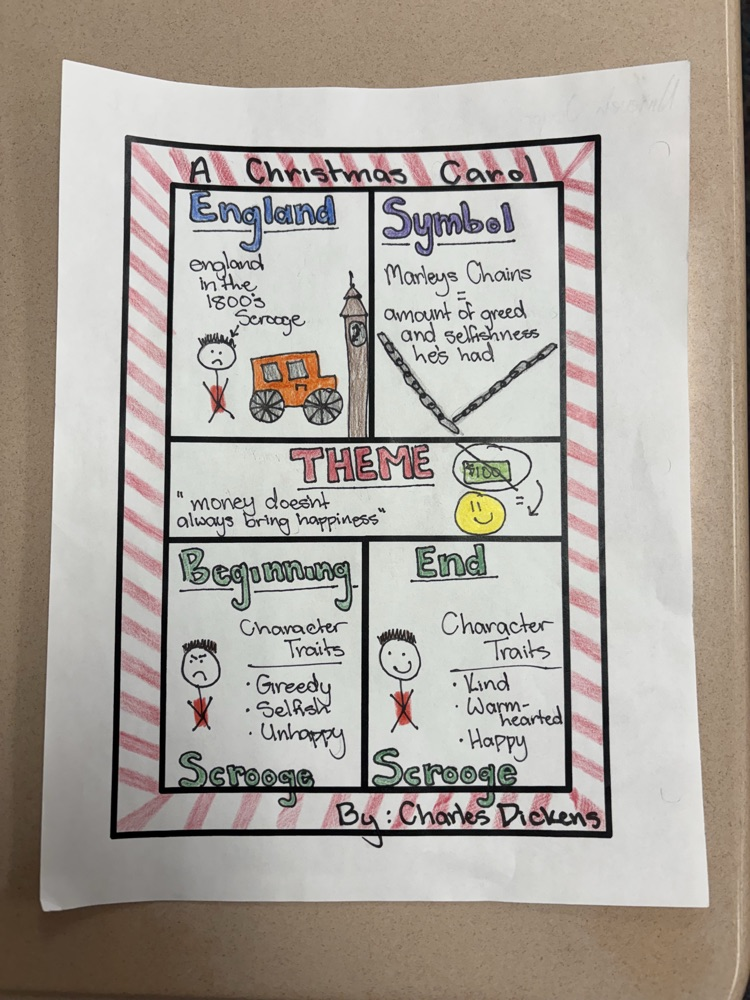 A Christmas Carol
England
england
in the
1800's
Scrooge
Symbol
Marleys Chains
=
amount of greed
and selfishness
he's had
THEME
"money doesnt
always bring happiness"
$100
=
Beginning
Character
Traits
· Greedy
· Selfish
· Unhappy
Scrooge
End
Character
Traits
· Kind
· Warm-
hearted
· Happy
Scrooge
By: Charles Dickens